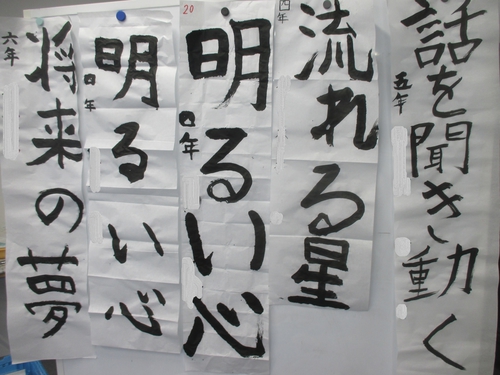 話を聞き動く
五年
流れる星
四年
20
明るい心
四年
明るい心
四年
将来の夢
六年